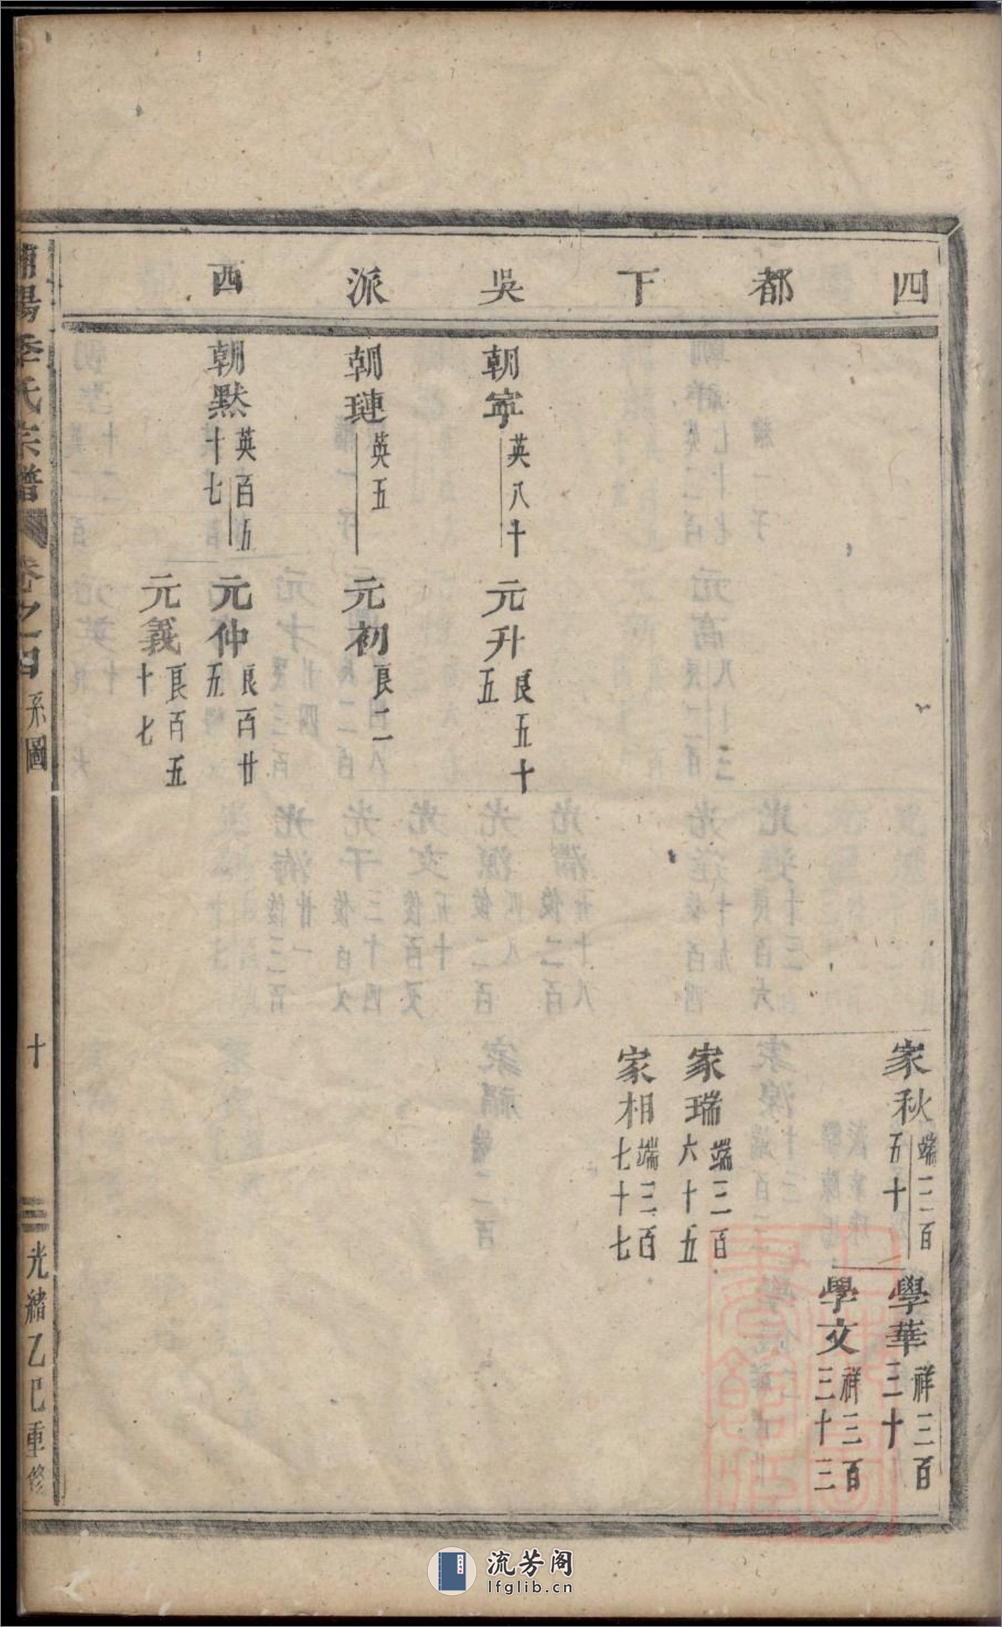 四都下吳派西
家秋 端三百五十
學華 祥三百三十
學文 祥三百三十三
家瑞 端三百六十五
家相 端三百七十七
朝寜 英八十
元升 良五十五
朝璉 英五
元初 良二
朝默 英百五十七
元仲 良百廿五
元義 良百五十七
陽季氏宗譜 卷之四 系圖 十 光緒乙巳重修
流芳阁
lfglib.cn